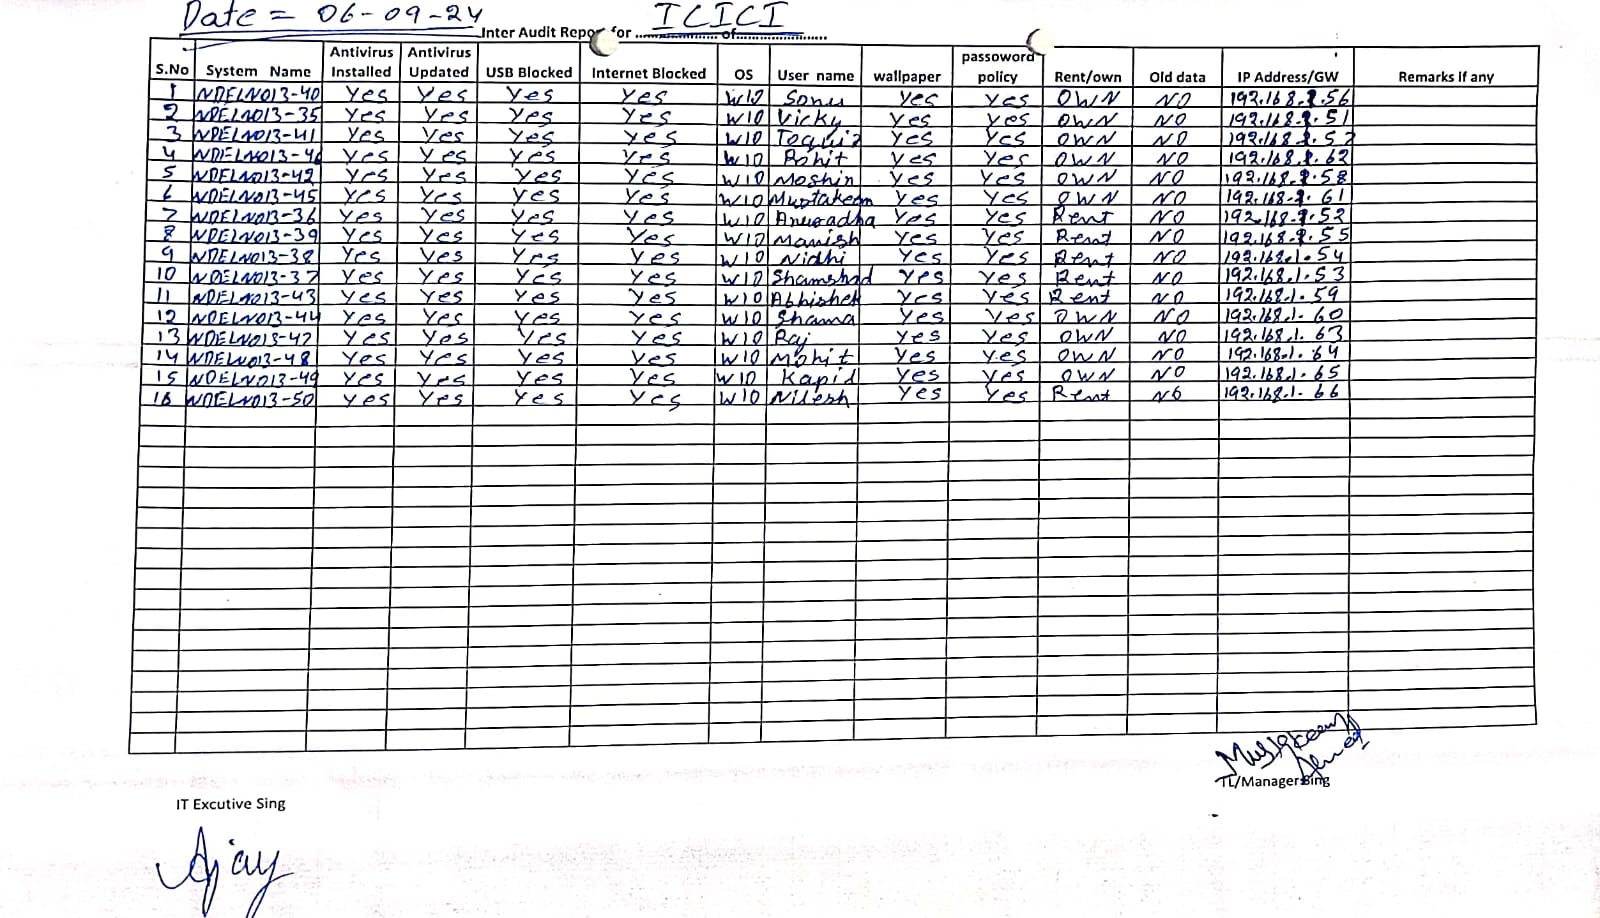 Date = 06-09-24 ICICI
Inter Audit Repor for .................... of.......................
S.No System Name Antivirus Installed Antivirus Updated USB Blocked Internet Blocked OS User name wallpaper passoword policy Rent/own Old data IP Address/GW Remarks if any
1 NDELNO13-40 Yes Yes Yes Yes W10 Sonu Yes Yes OWN NO 192.168.1.56
2 NDELNO13-35 Yes Yes Yes Yes W10 Vicky Yes Yes OWN NO 192.168.1.51
3 NDELNO13-41 Yes Yes Yes Yes W10 Yes Yes OWN NO 192.168.1.57
4 NDELNO13-46 Yes Yes Yes Yes W10 Rohit Yes Yes OWN NO 192.168.1.62
5 NDELNO13-42 Yes Yes Yes Yes W10 Moshin Yes Yes OWN NO 192.168.1.58
6 NDELNO13-45 Yes Yes Yes Yes W10 Mustakeem Yes Yes OWN NO 192.168.1.61
7 NDELNO13-36 Yes Yes Yes Yes W10 Anuradha Yes Yes Rent NO 192.168.1.52
8 NDELNO13-39 Yes Yes Yes Yes W10 Manish Yes Yes Rent NO 192.168.1.55
9 NDELNO13-38 Yes Yes Yes Yes W10 Nidhi Yes Yes Rent NO 192.168.1.54
10 NDELNO13-37 Yes Yes Yes Yes W10 Shamshad Yes Yes Rent NO 192.168.1.53
11 NDELNO13-43 Yes Yes Yes Yes W10 Abhishek Yes Yes Rent NO 192.168.1.59
12 NDELNO13-44 Yes Yes Yes Yes W10 Shama Yes Yes OWN NO 192.168.1.60
13 NDELNO13-47 Yes Yes Yes Yes W10 Raj Yes Yes OWN NO 192.168.1.63
14 NDELNO13-48 Yes Yes Yes Yes W10 Mohit Yes Yes OWN NO 192.168.1.64
15 NDELNO13-49 Yes Yes Yes Yes W10 Kapil Yes Yes OWN NO 192.168.1.65
16 NDELNO13-50 Yes Yes Yes Yes W10 Nilesh Yes Yes Rent NO 192.168.1.66
Mustakeem
Ahmed
TL/Manager Sing
IT Excutive Sing
Ajay